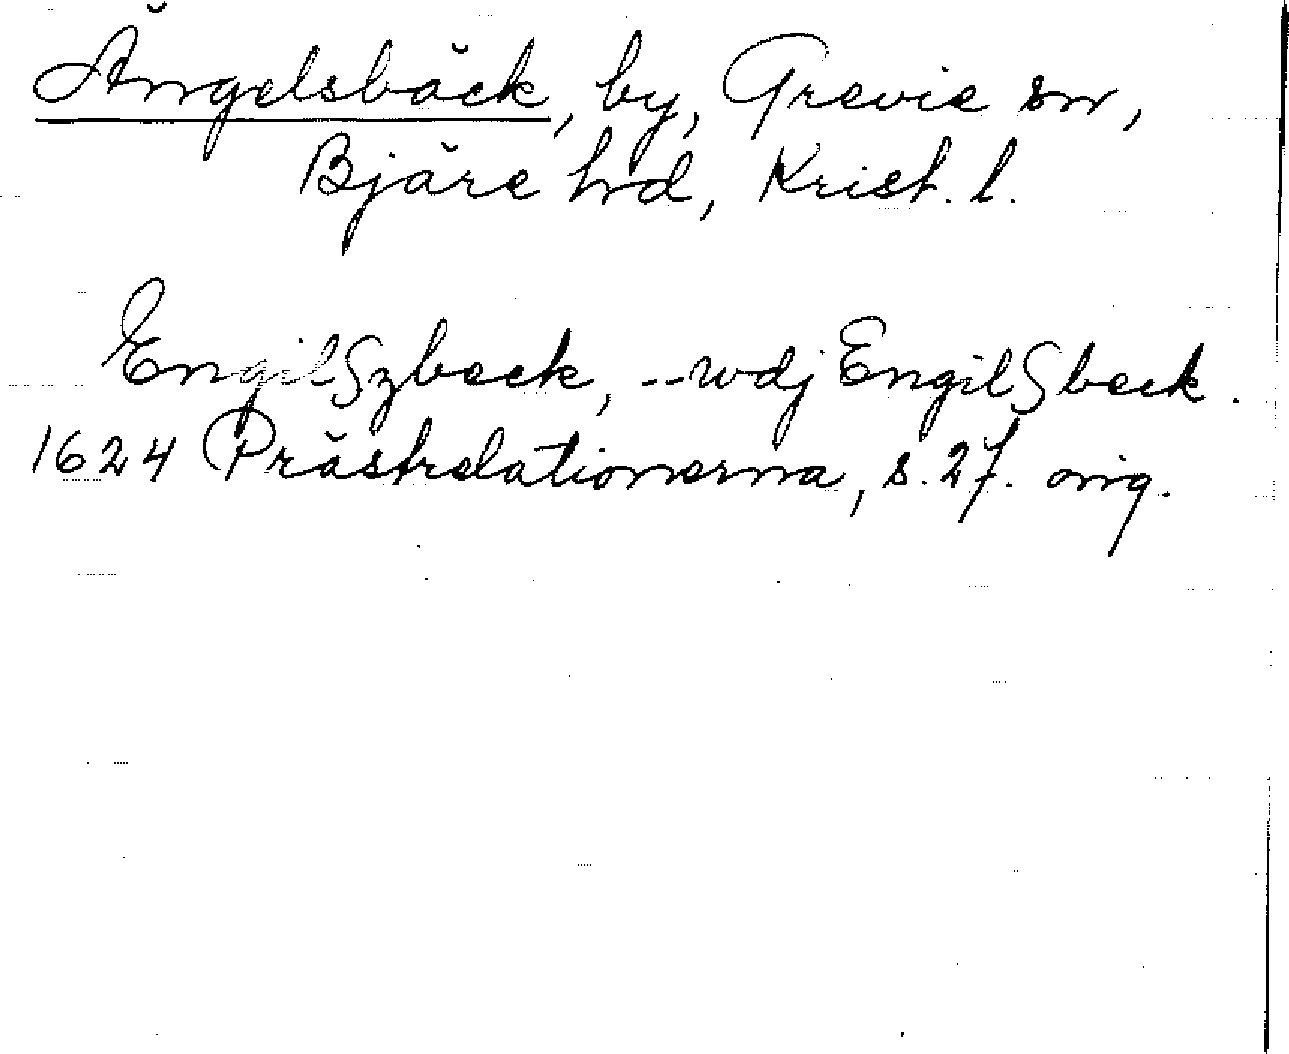 Ängelsbäck, by, Grevie sn,
Bjäre hd, Krist. l.
Engilßzbeck, --wdj Engilßbeck.
1624 Prästrelationerna, s. 27. orig.